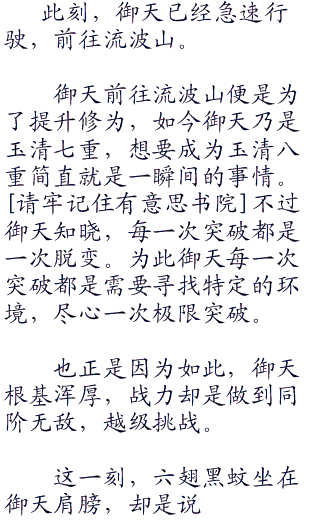 此刻，御天已经急速行
驶，前往流波山。
御天前往流波山便是为
了提升修为，如今御天乃是
玉清七重，想要成为玉清八
重简直就是一瞬间的事情。
[请牢记住有意思书院]不过
御天知晓，每一次突破都是
一次脱变。为此御天每一次
突破都是需要寻找特定的环
境，尽心一次极限突破。
也正是因为如此，御天
根基浑厚，战力却是做到同
阶无敌，越级挑战。
这一刻，六翅黑蚊坐在
御天肩膀，却是说